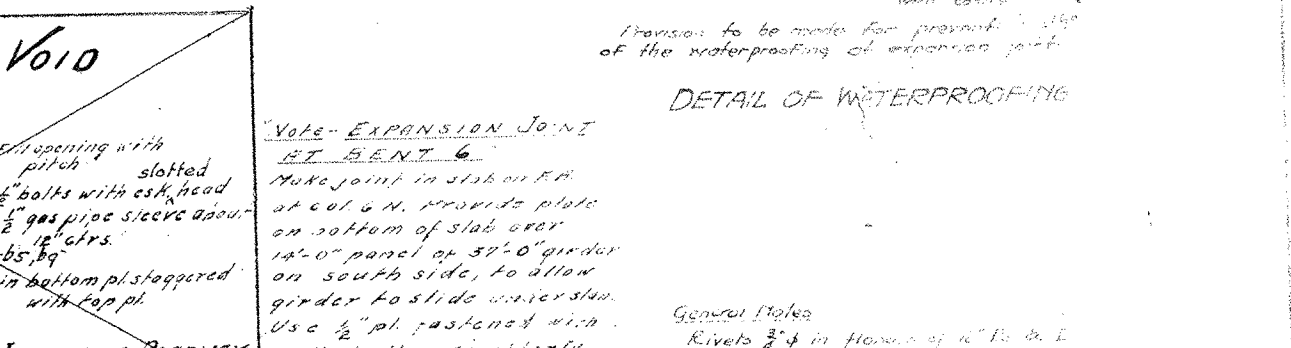 VOID
Fill opening with
pitch
slotted
½" bolts with csk. head
½" gas pipe sleeve about
12" ctrs.
in bottom pl. staggered
with top pl.
Note - EXPANSION JOINT
AT BENT 6
Make joint in slab on
at col. 6 N. Provide plate
on bottom of slab over
14'-0" panel of 37'-0" girder
on south side, to allow
girder to slide under slab.
Use ½" pl. fastened with
Provision to be made for
of the waterproofing at expansion joint.
DETAIL OF WATERPROOFING
General Notes
Rivets ¾"ϕ in flanges of